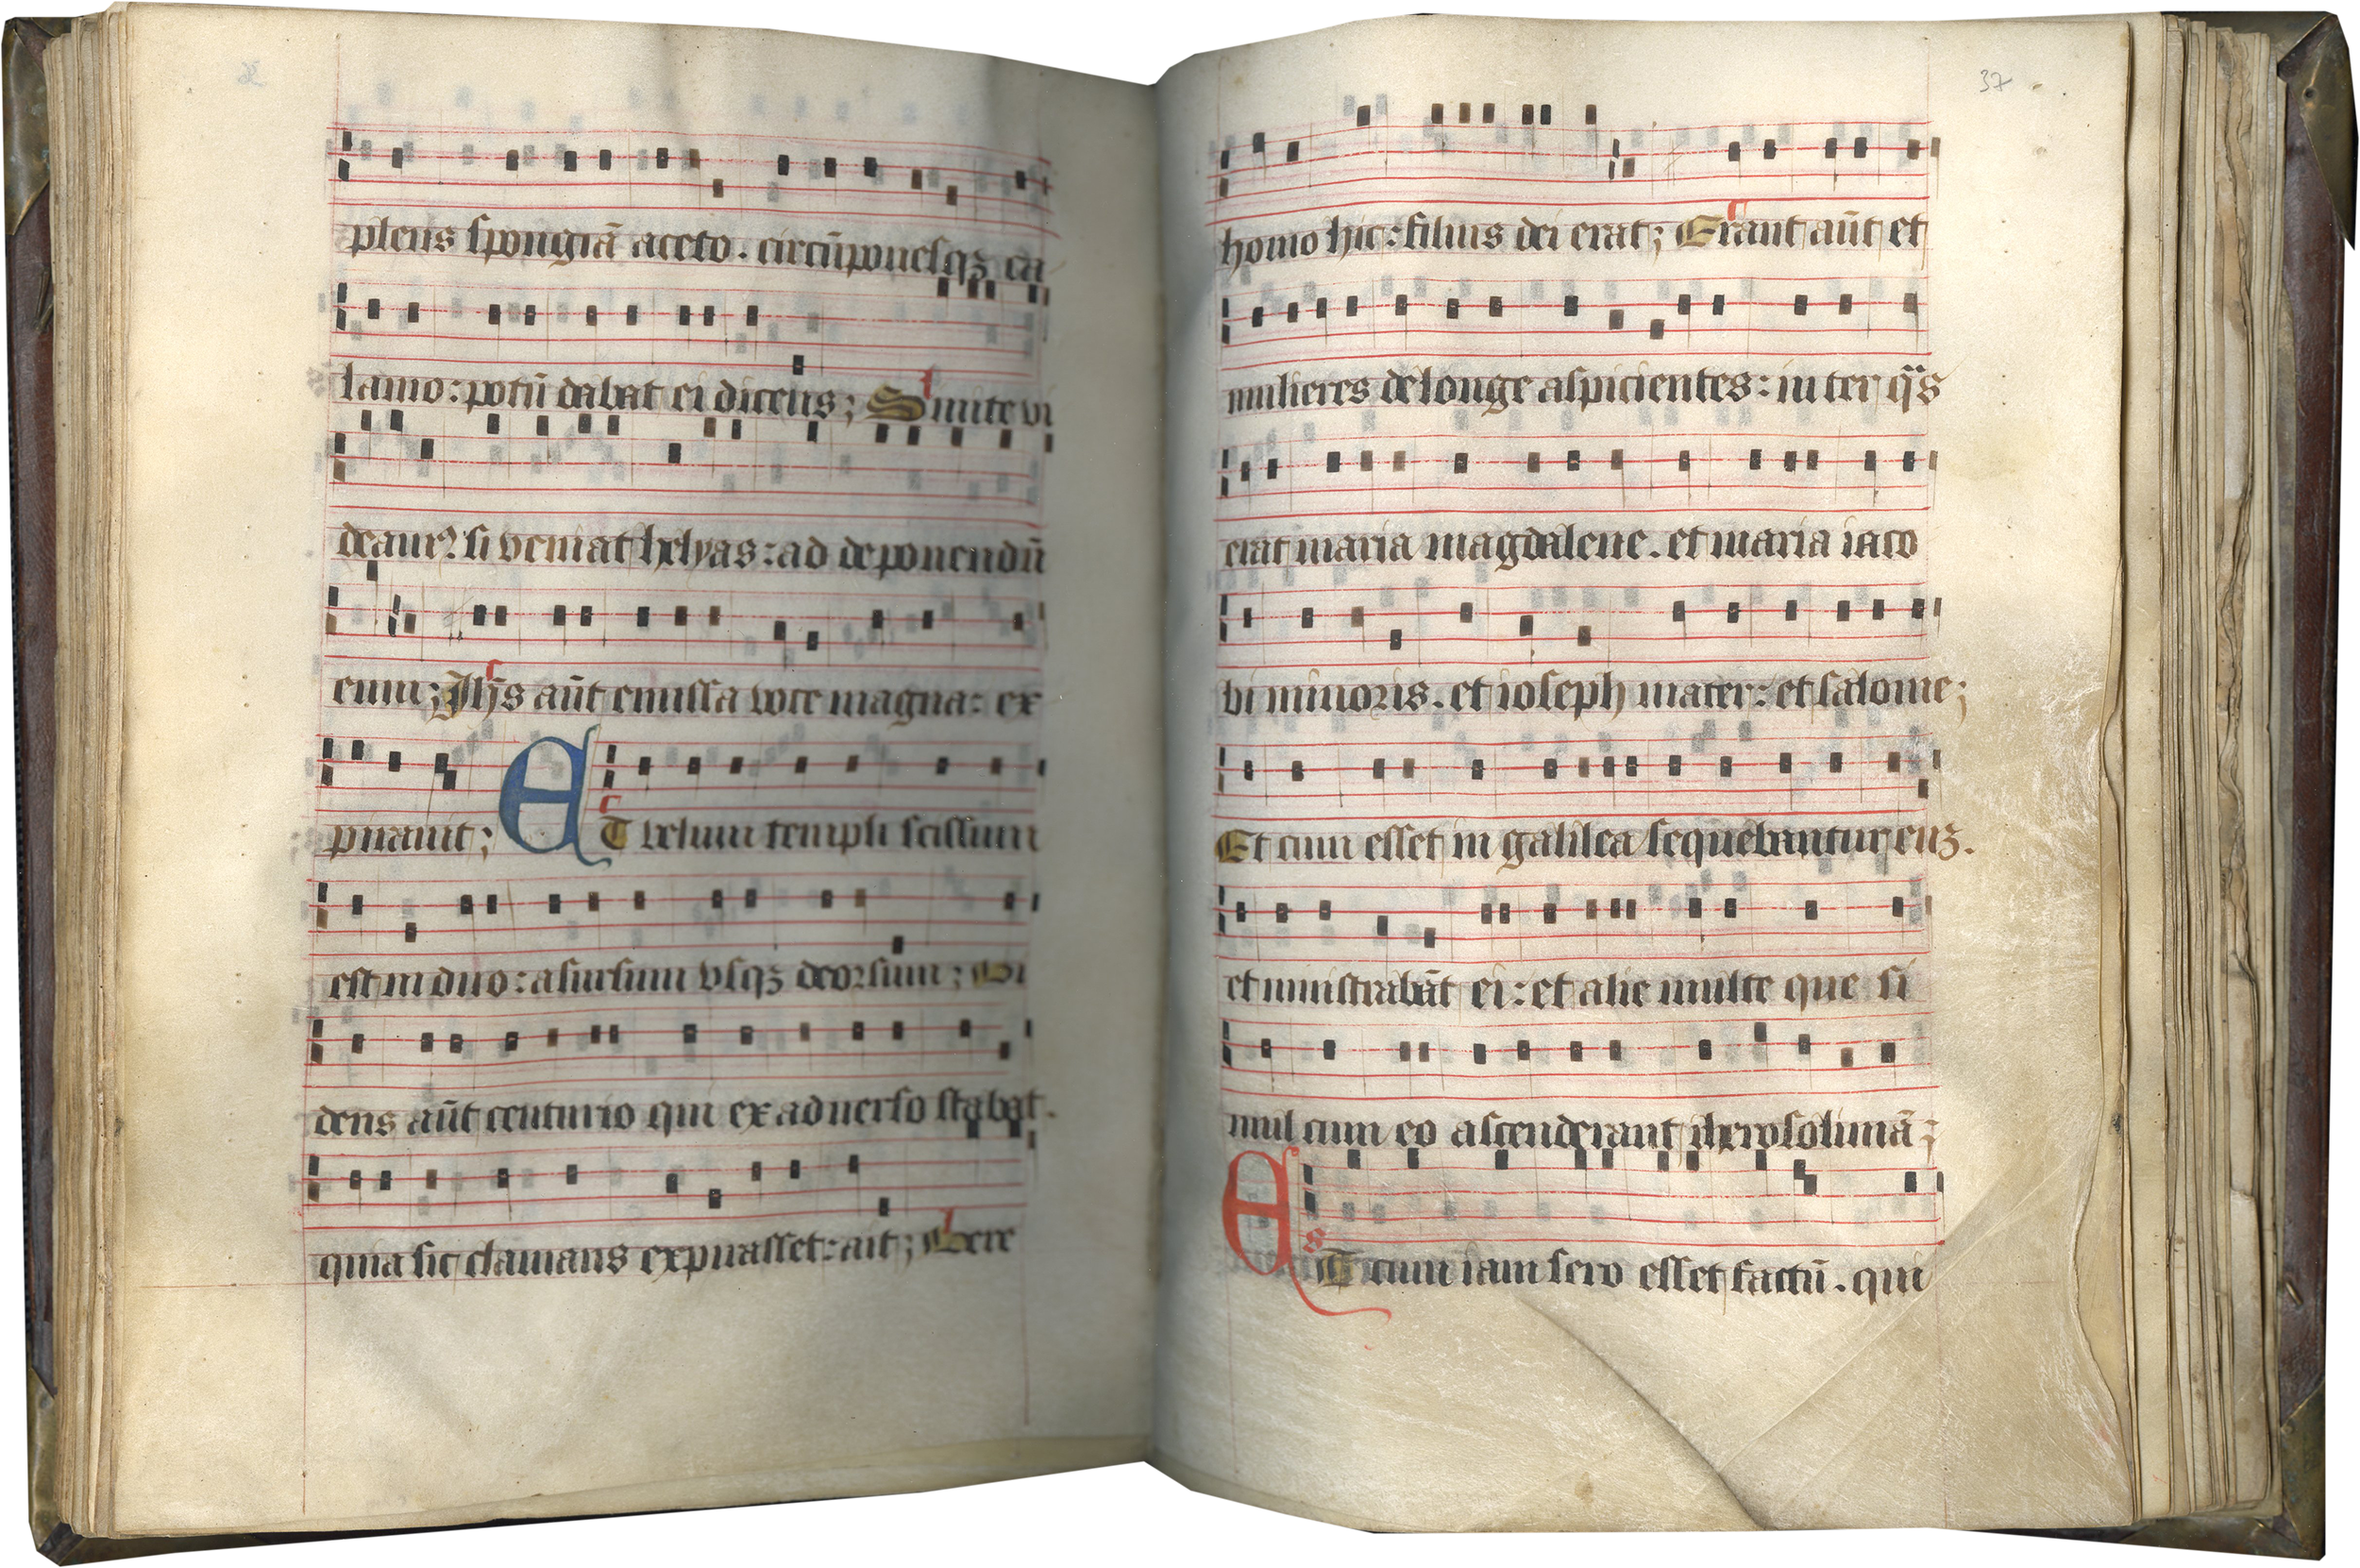 plens spongiā aceto. circūponēsqꝫ ca
lamo: potū dabat ei dicens; Sinite vi
deamꝰ si veniat helyas: ad deponendū
eum; Jhs̄ aūt emissa voce magna: ex
pirauit; ET velum templi scissum
est in duo: a sursum vsqꝫ deorsum; Vi
dens aūt centurio qui ex aduerso stabat.
quia sic clamans expirasset: ait; Vere
37
homo hic: filius dei erat; Erant aūt et
mulieres de longe aspicientes: inter q̄s
erat maria magdalene. et maria iaco
bi minoris. et ioseph mater: et salome;
Et cum esset in galilea sequebantur eūꝫ.
et ministrabāt ei: et alie multe que si
mul cum eo ascenderant iherosolimā;
ET cum iam sero esset factū. qui